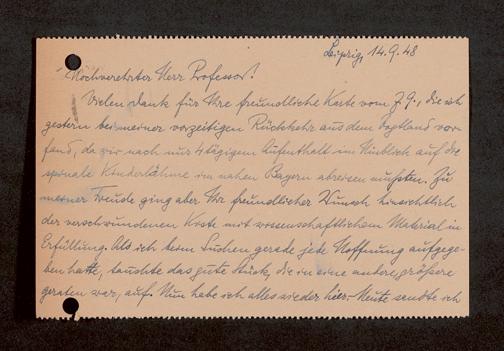 Leipzig, 14.9.48
Hochverehrter Herr Professor!
Vielen Dank für Ihre freundliche Karte vom 7.9., die ich
gestern bei meiner vorzeitigen Rückkehr aus dem Vogtland vor-
fand, da wir nach nur 4 tägigem Aufenthalt im Hinblick auf die
spinale Kinderlähme im nahen Bayern abreisen mußten. Zu
meiner Freude ging aber Ihr freundlicher Wunsch hinsichtlich
der verschwundenen Kiste mit wissenschaftlichem Material in
Erfüllung. Als ich beim Suchen gerade jede Hoffnung aufgege-
ben hatte, tauchte das gute Stück, die in eine andere, größere
geraten war, auf. Nun habe ich alles wieder hier. Heute sandte ich